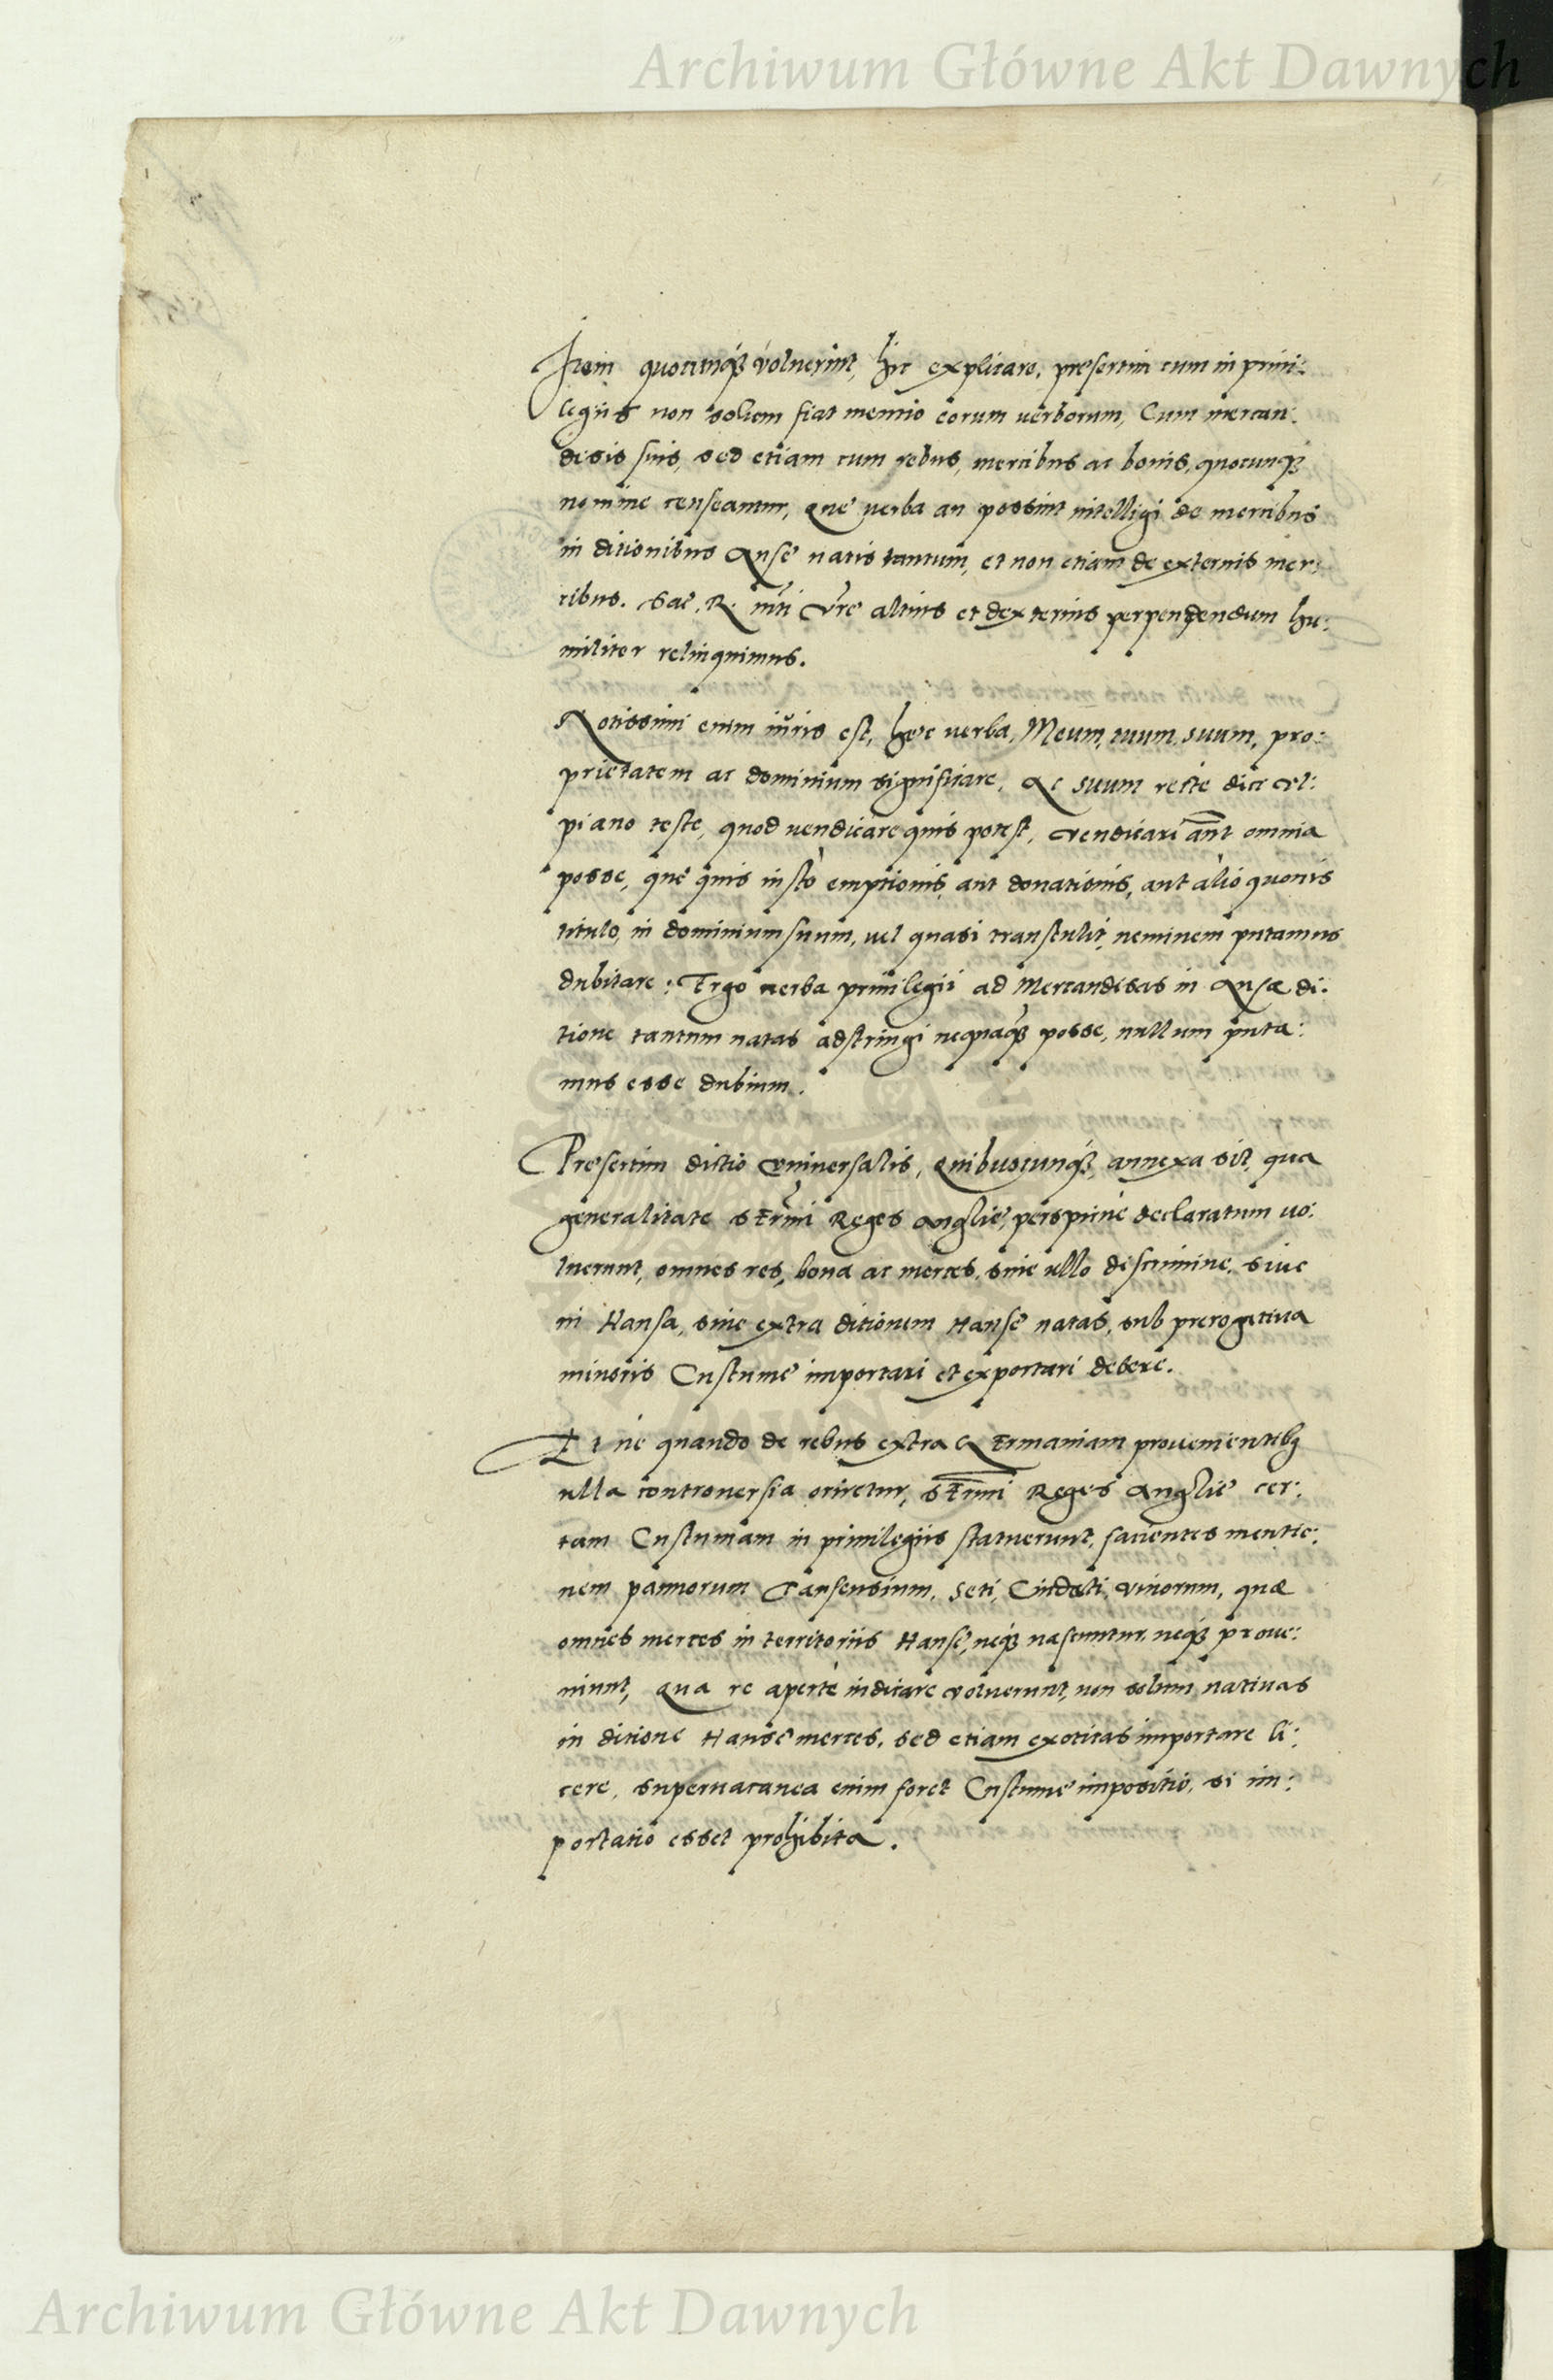 Archiwum Główne Akt Dawnych
Item quocunqꝫ voluerint, hic explicare, presertim cum in priui:
legiis non solum fiat mentio eorum uerborum, Cum mercan:
disis suis, sed etiam cum rebus, mercibus ac bonis, quocunqꝫ
nomine censeantur, que uerba an possint intelligi de mercibus
in ditionibus Ansę natis tantum, et non etiam de externis mer:
cibus. Sac. R. mti Vrę altius et dexterius perpendendum hu:
militer relinquimus.
Notissimi enim iuris est, hęc uerba, Meum, tuum, suum, pro:
prietatem ac dominium significare, Ac suum recte dici Vl:
piano teste, quod uendicare quis potest, Vendicari aut omnia
posse, quę quis iusto emptionis, aut donationis, aut alio quouis
titulo, in dominium suum, uel quasi transtulit, neminem putamus
dubitare: Ergo uerba priuilegii ad Mercandisas in Ansæ di:
tione tantum natas adstringi nequaqꝫ posse, nullum puta:
mus esse dubium.
Pręsertim dictio Vniuersalis, Quibuscunqꝫ, annexa sit, qua
generalitate sErmi Reges Anglię, perspicuè declaratum uo:
luerunt, omnes res, bona ac merces, siue ullo discrimine, siue
in Hansa, siue extra ditionem Hansę natas, sub prerogatiua
minoris Custumę importari et exportari debere.
Et ne quando de rebus extra GErmaniam prouenientibꝫ
ulla controuersia oriretur, sErmi Reges Anglię cer:
tam Custumam in priuilegiis statuerunt, facientes mentio:
nem pannorum Tansensium, Seti, Cindati, vinorum, quæ
omnes merces in territoriis Hansę, neqꝫ nascuntur, neqꝫ proue:
niunt, Qua re apertè indicare voluerunt, non solum natiuas
in ditione Hansę merces, sed etiam exoticas importare li:
cere, superuacanea enim foret Custumę impositio, si im:
portatio esset prohibita.
Archiwum Główne Akt Dawnych